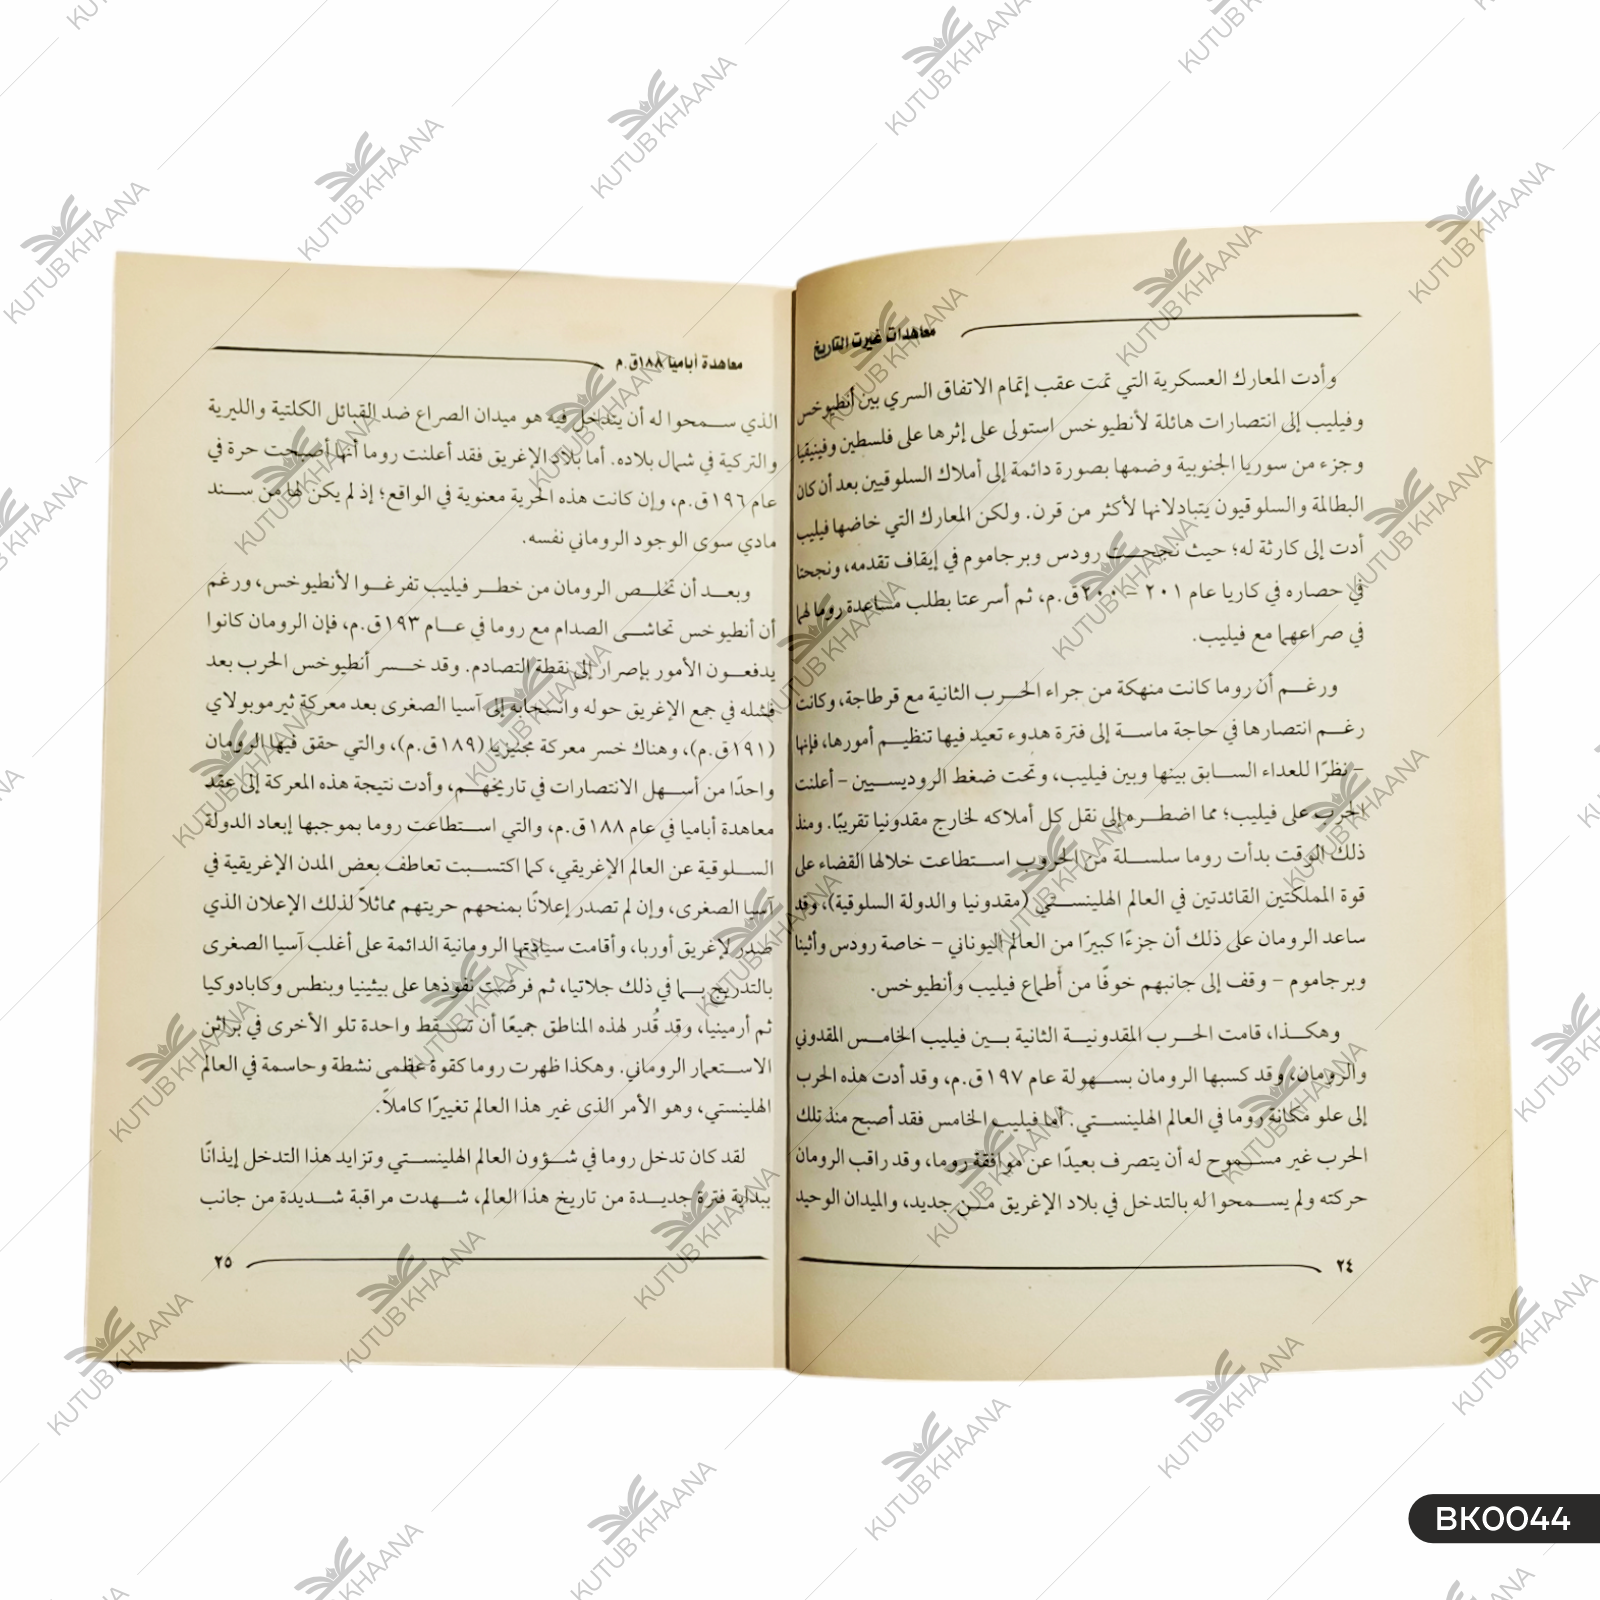 معاهدات غيرت التاريخ
وأدت المعارك العسكرية التي تمت عقب إتمام الاتفاق السري بين أنطيوخس
وفيليب إلى انتصارات هائلة لأنطيوخس استولى على إثرها على فلسطين وفينيقيا
وجزء من سوريا الجنوبية وضمها بصورة دائمة إلى أملاك السلوقيين بعد أن كان
البطالمة والسلوقيون يتبادلانها لأكثر من قرن. ولكن المعارك التي خاضها فيليب
أدت إلى كارثة له؛ حيث نجحت رودس وبرجاموم في إيقاف تقدمه، ونجحتا
في حصاره في كاريا عام ٢٠١ - ٢٠٠ق.م، ثم أسرعتا بطلب مساعدة روما لهما
في صراعهما مع فيليب.
ورغم أن روما كانت منهكة من جراء الحرب الثانية مع قرطاجة، وكانت
رغم انتصارها في حاجة ماسة إلى فترة هدوء تعيد فيها تنظيم أمورها، فإنها
- نظرًا للعداء السابق بينها وبين فيليب، وتحت ضغط الروديسيين - أعلنت
الحرب على فيليب؛ مما اضطره إلى نقل كل أملاكه لخارج مقدونيا تقريبًا. ومنذ
ذلك الوقت بدأت روما سلسلة من الحروب استطاعت خلالها القضاء على
قوة المملكتين القائدتين في العالم الهلينستي (مقدونيا والدولة السلوقية)، وقد
ساعد الرومان على ذلك أن جزءًا كبيرًا من العالم اليوناني - خاصة رودس وأثينا
وبرجاموم - وقف إلى جانبهم خوفًا من أطماع فيليب وأنطيوخس.
وهكذا، قامت الحرب المقدونية الثانية بين فيليب الخامس المقدوني
والرومان، وقد كسبها الرومان بسهولة عام ١٩٧ق.م، وقد أدت هذه الحرب
إلى علو مكانة روما في العالم الهلينستي. أما فيليب الخامس فقد أصبح منذ تلك
الحرب غير مسموح له أن يتصرف بعيدًا عن موافقة روما، وقد راقب الرومان
حركته ولم يسمحوا له بالتدخل في بلاد الإغريق من جديد، والميدان الوحيد
٢٤
معاهدة أباميا ١٨٨ق.م
الذي سمحوا له أن يتدخل فيه هو ميدان الصراع ضد القبائل الكلتية والليرية
والتركية في شمال بلاده. أما بلاد الإغريق فقد أعلنت روما أنها أصبحت حرة في
عام ١٩٦ق.م، وإن كانت هذه الحرية معنوية في الواقع؛ إذ لم يكن لها من سند
مادي سوى الوجود الروماني نفسه.
وبعد أن تخلص الرومان من خطر فيليب تفرغوا لأنطيوخس، ورغم
أن أنطيوخس تحاشى الصدام مع روما في عام ١٩٣ق.م، فإن الرومان كانوا
يدفعون الأمور بإصرار إلى نقطة التصادم. وقد خسر أنطيوخس الحرب بعد
فشله في جمع الإغريق حوله وانسحابه إلى آسيا الصغرى بعد معركة ثيرموبولاي
(١٩١ق.م)، وهناك خسر معركة مجنيزيا (١٨٩ق.م)، والتي حقق فيها الرومان
واحدًا من أسهل الانتصارات في تاريخهم، وأدت نتيجة هذه المعركة إلى عقد
معاهدة أباميا في عام ١٨٨ق.م، والتي استطاعت روما بموجبها إبعاد الدولة
السلوقية عن العالم الإغريقي، كما اكتسبت تعاطف بعض المدن الإغريقية في
آسيا الصغرى، وإن لم تصدر إعلانًا بمنحهم حريتهم مماثلاً لذلك الإعلان الذي
صدر لإغريق أوربا، وأقامت سيادتها الرومانية الدائمة على أغلب آسيا الصغرى
بالتدريج بما في ذلك جلاتيا، ثم فرضت نفوذها على بيثينيا وبنطس وكابادوكيا
ثم أرمينيا، وقد قُدر لهذه المناطق جميعًا أن تسقط واحدة تلو الأخرى في براثن
الاستعمار الروماني. وهكذا ظهرت روما كقوة عظمى نشطة وحاسمة في العالم
الهلينستي، وهو الأمر الذى غير هذا العالم تغييرًا كاملاً.
لقد كان تدخل روما في شؤون العالم الهلينستي وتزايد هذا التدخل إيذانًا
ببداية فترة جديدة من تاريخ هذا العالم، شهدت مراقبة شديدة من جانب
٢٥
BK0044
KUTUB KHAANA